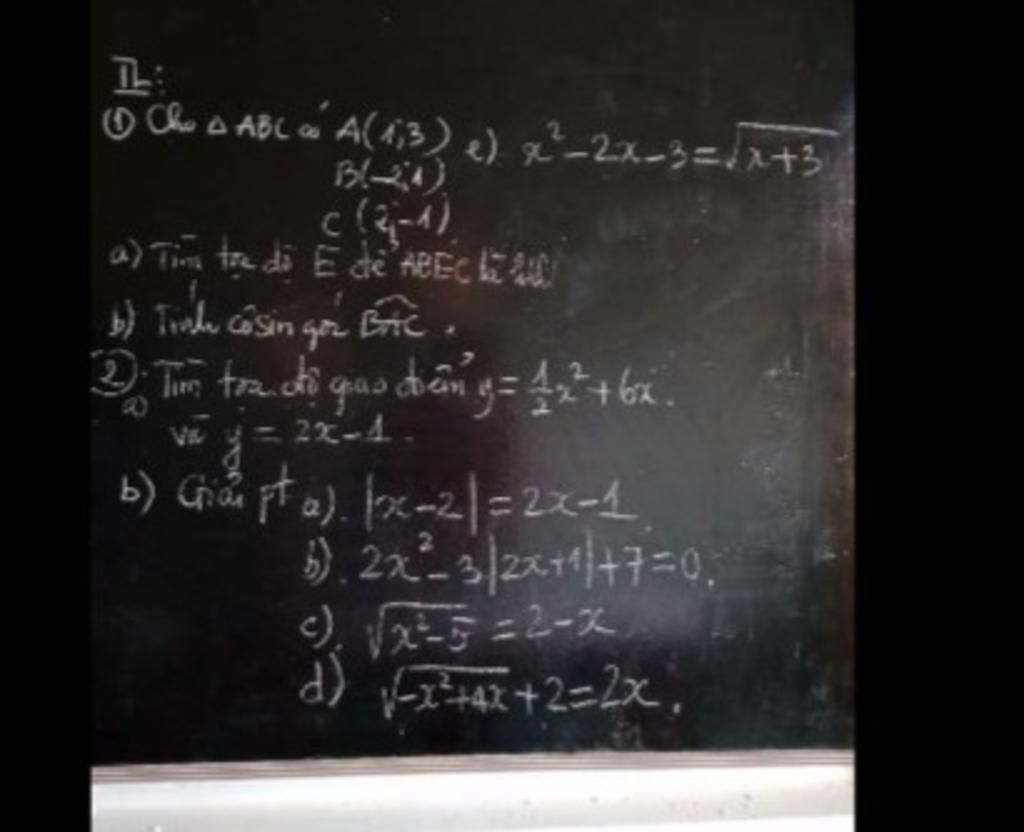 II:
① Cho △ ABC có A(1;3)
B(-2;1)
C (2;-1)
a) Tìm tọa độ E để ABEC là hbh
b) Tính côsin góc BAC.
② a) Tìm tọa độ giao điểm y = 1/2 x² + 6x.
và y = 2x - 1.
b) Giải pt a). |x-2| = 2x-1
b). 2x² - 3|2x+1| + 7 = 0.
c). √(x²-5) = 2-x
d) √(-x²+4x) + 2 = 2x.
e) x² - 2x - 3 = √(x+3)